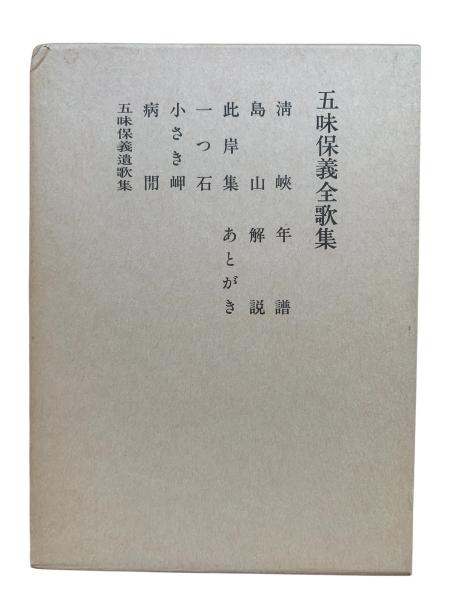 五味保義全歌集
清峽 年譜
島山 解説
此岸集 あとがき
一つ石
小さき岬
病閒
五味保義遺歌集